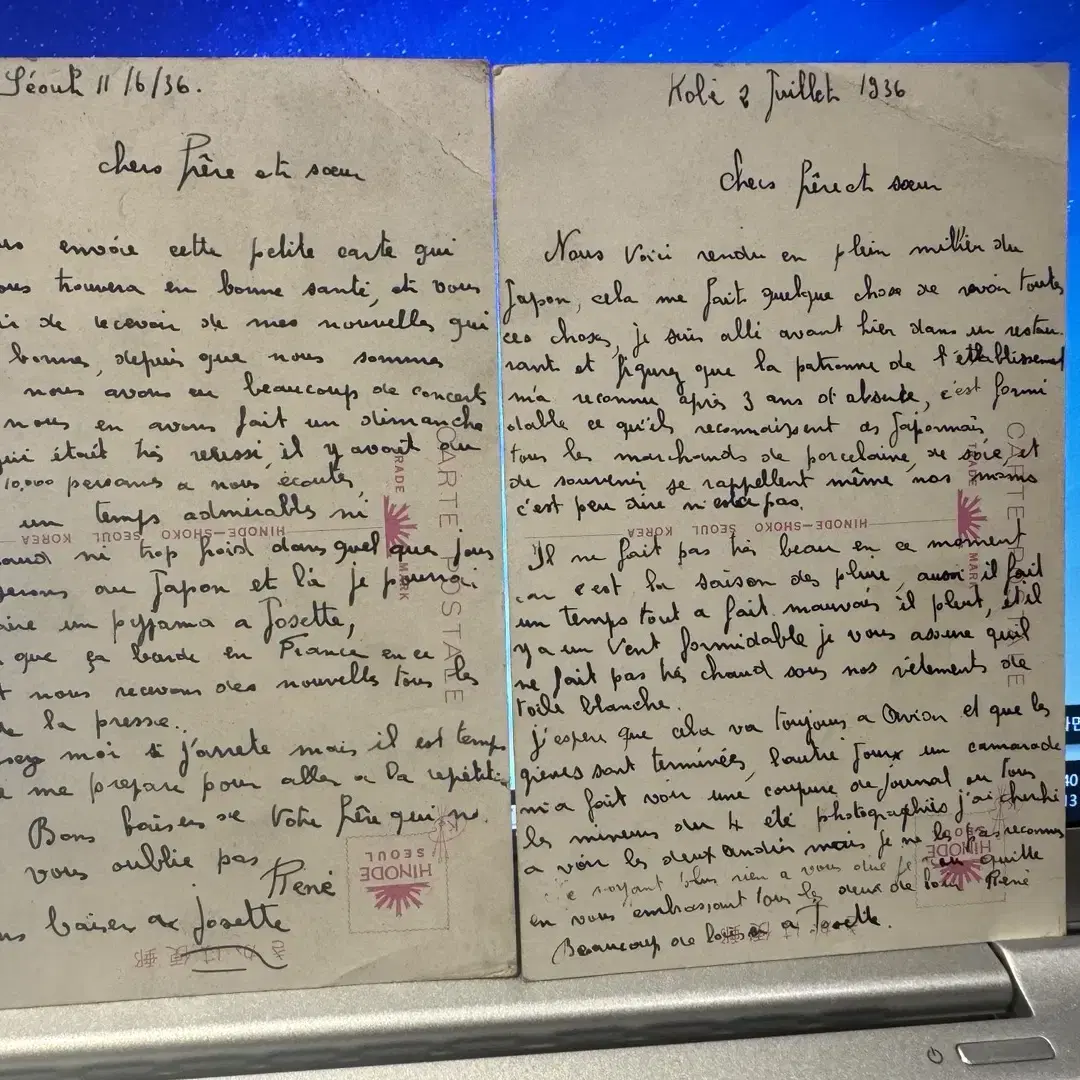 Séoul 11/6/36.
chers frère et sœur
envoie cette petite carte qui
trouvera en bonne santé, et vous
de recevoir de mes nouvelles qui
bonnes, depuis que nous sommes
nous avons eu beaucoup de concerts
nous en avons fait un dimanche
qui était très réussi, il y avait
10,000 personnes a nous écouter,
un temps admirables ni
ni trop froid dans quel que jours
au Japon et là je pourrai
un pyjama a Josette,
que ça barde en France en ce
nous recevons des nouvelles tous les
la presse.
moi si j'arrete mais il est temps
me prepare pour aller a la
Bons baisers de Votre frère qui
vous oublie pas
René
baiser a Josette
CARTE POSTALE
TRADE MARK
HINODE-SHOKO SEOUL KOREA
HINODE
SEOUL
郵便はかき
Kobé 2 Juillet 1936
Chers frère et sœur
Nous Voici rendu en plein milieu du
Japon, cela me fait quelque chose de revoir toutes
ces choses, je suis allé avant hier dans un restau-
rant et figurez que la patronne de l'établissement
m'a reconnu après 3 ans d'absente, c'est formi
dable ce qu'ils reconnaissent ces Japonnais
tous les marchands de porcelaine, de soie, et
de souvenir se rappellent même nos noms
c'est peu dire n'est ce pas.
Il ne fait pas très beau en ce moment
car c'est la saison des pluie, aussi il fait
un temps tout a fait mauvais il pleut, et il
y a un Vent formidable je vous assure qu'il
ne fait pas très chaud sous nos vêtements de
toile blanche.
j'espere que cela va toujours a Avion et que les
grèves sont terminées, l'autre Jour un camarade
m'a fait voir une coupure de Journal ou tous
les mineurs du 4 été photographiés j'ai cherché
a voir les deux andrés mais je ne les pas reconnus
voyant plus rien a vous dire je quitte
en vous embrassant tous les deux de loin René
Beaucoup de a Josette.
CARTE POSTALE
TRADE MARK
HINODE-SHOKO SEOUL KOREA
HINODE